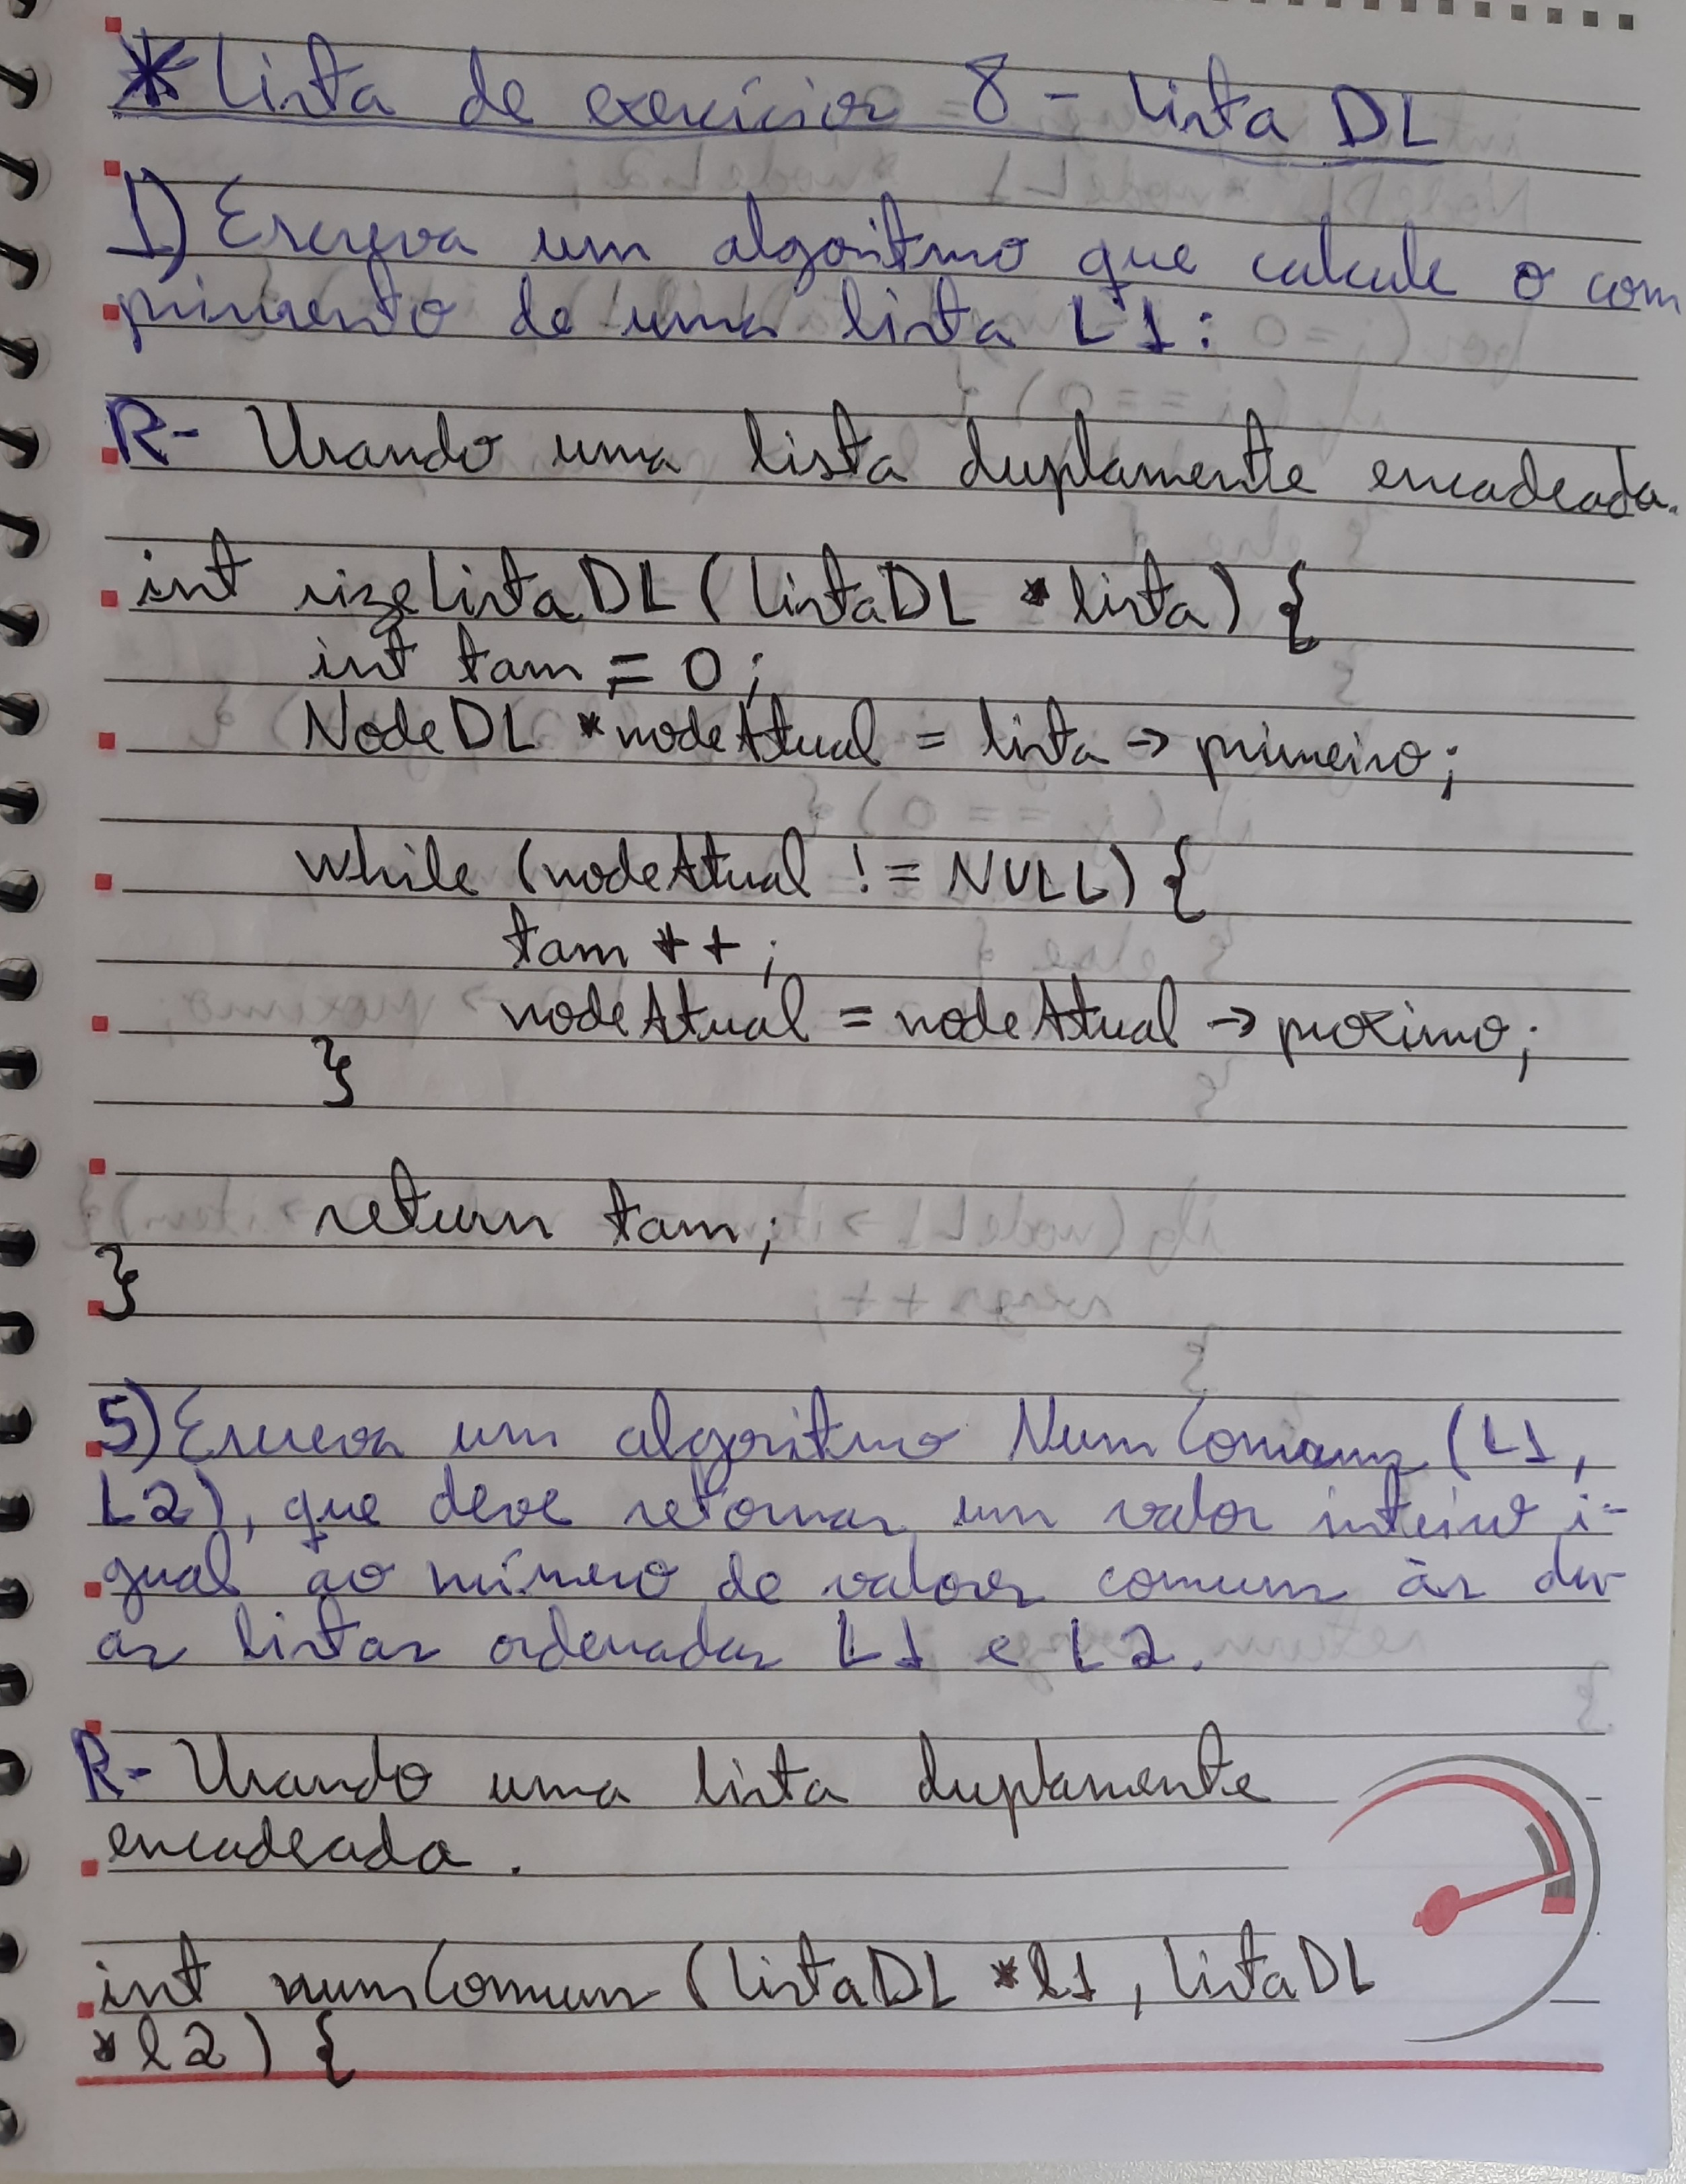 * Lista de exercícios 8 - Lista DL
1) Escreva um algoritmo que calcule o com
primento de uma lista L1:
R- Usando uma lista duplamente encadeada.
int sizeListaDL (ListaDL *lista) {
int tam = 0;
NodeDL *nodeAtual = lista -> primeiro;
while (nodeAtual != NULL) {
tam ++;
nodeAtual = nodeAtual -> proximo;
}
return tam;
}
5) Escreva um algoritmo NumComuns (L1,
L2), que deve retornar um valor inteiro i-
gual ao número de valores comuns às du-
as listas ordenadas L1 e L2.
R- Usando uma lista duplamente
encadeada.
int numComuns (ListaDL *l1, ListaDL
*l2) {